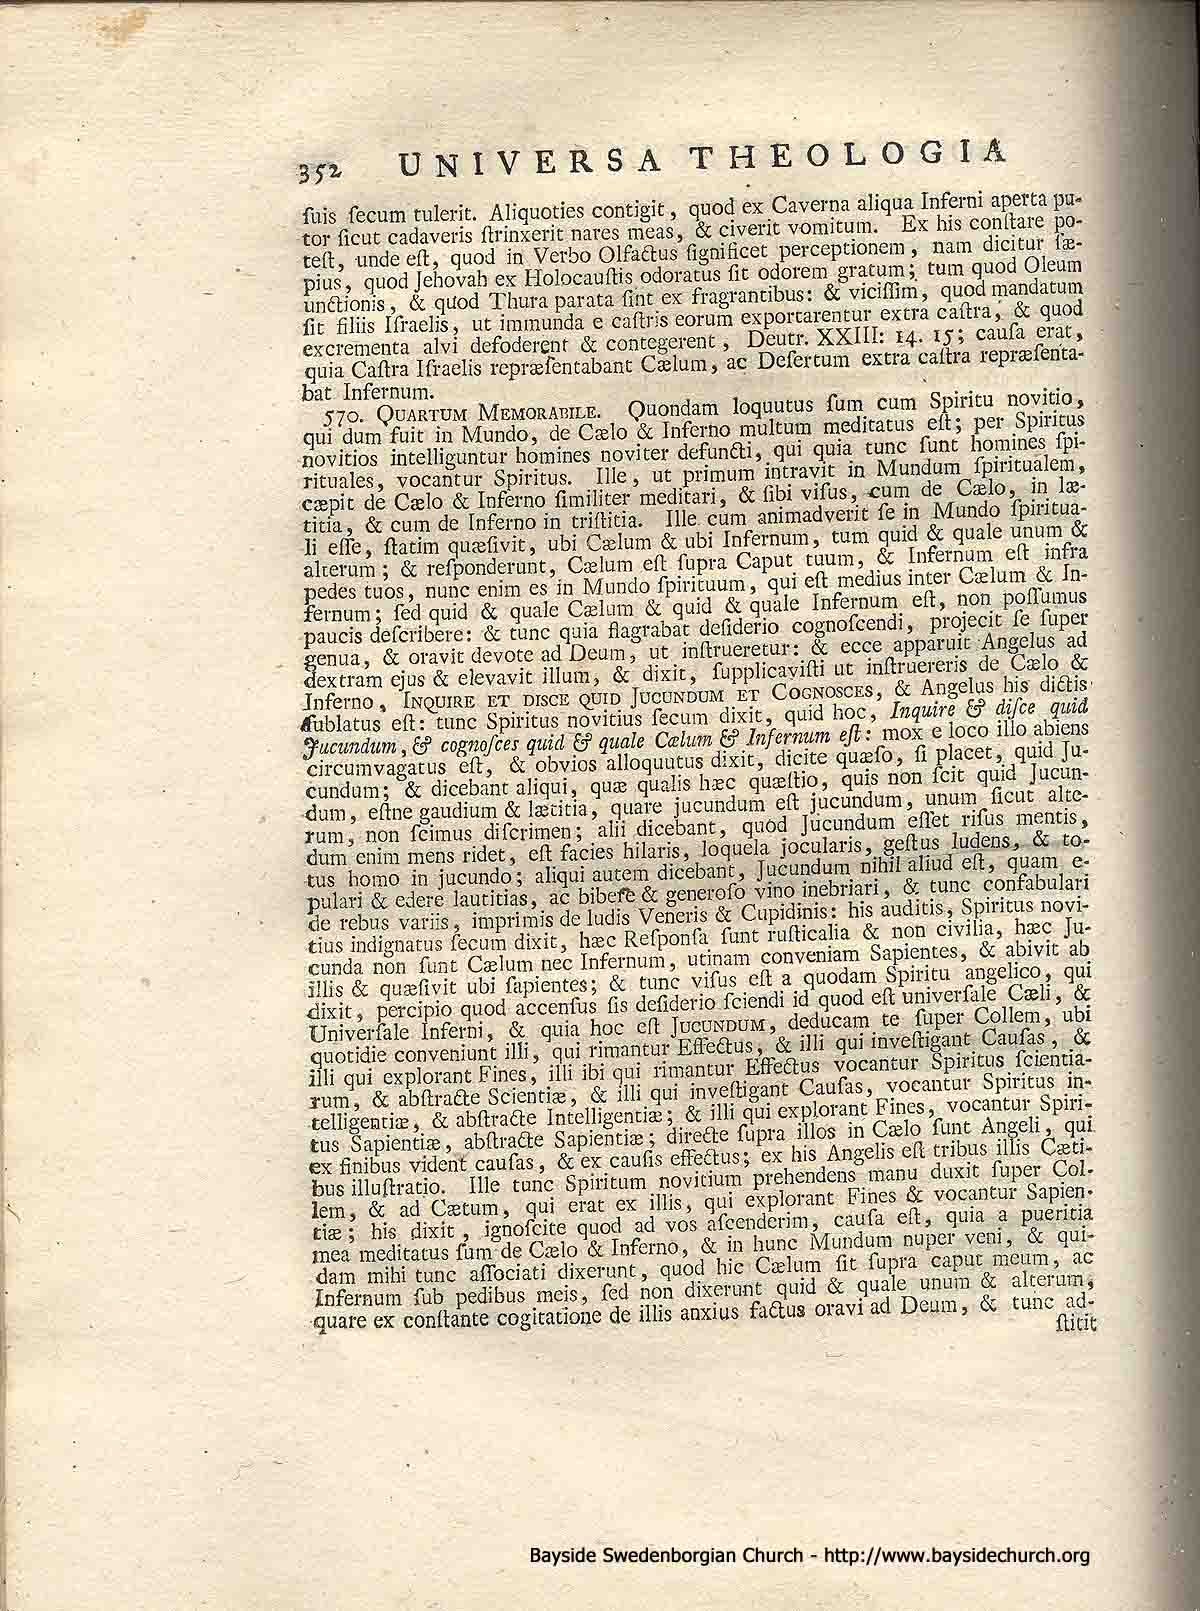 352 UNIVERSA THEOLOGIA
ſuis ſecum tulerit. Aliquoties contigit, quod ex Caverna aliqua Inferni aperta pu-
tor ſicut cadaveris ſtrinxerit nares meas, & civerit vomitum. Ex his conſtare po-
teſt, unde eſt, quod in Verbo Olfactus ſignificet perceptionem, nam dicitur ſæ-
pius, quod Jehovah ex Holocauſtis odoratus ſit odorem gratum; tum quod Oleum
unctionis, & quod Thura parata ſint ex fragrantibus: & viciſſim, quod mandatum
ſit filiis Iſraelis, ut immunda e caſtris eorum exportarentur extra caſtra, & quod
excrementa alvi defoderent & contegerent, Deutr. XXIII: 14. 15; cauſa erat,
quia Caſtra Iſraelis repræſentabant Cælum, ac Deſertum extra caſtra repræſenta-
bat Infernum.
570. QUARTUM MEMORABILE. Quondam loquutus ſum cum Spiritu novitio,
qui dum fuit in Mundo, de Cælo & Inferno multum meditatus eſt; per Spiritus
novitios intelliguntur homines noviter defuncti, qui quia tunc ſunt homines ſpi-
rituales, vocantur Spiritus. Ille, ut primum intravit in Mundum ſpiritualem,
cæpit de Cælo & Inferno ſimiliter meditari, & ſibi viſus, cum de Cælo, in læ-
titia, & cum de Inferno in triſtitia. Ille cum animadverit ſe in Mundo ſpiritua-
li eſſe, ſtatim quæſivit, ubi Cælum & ubi Infernum, tum quid & quale unum &
alterum; & reſponderunt, Cælum eſt ſupra Caput tuum, & Infernum eſt infra
pedes tuos, nunc enim es in Mundo ſpirituum, qui eſt medius inter Cælum & In-
fernum; ſed quid & quale Cælum & quid & quale Infernum eſt, non poſſumus
paucis deſcribere: & tunc quia flagrabat deſiderio cognoſcendi, projecit ſe ſuper
genua, & oravit devote ad Deum, ut inſtrueretur: & ecce apparuit Angelus ad
dextram ejus & elevavit illum, & dixit, ſupplicaviſti ut inſtruereris de Cælo &
Inferno, INQUIRE ET DISCE QUID JUCUNDUM ET COGNOSCES, & Angelus his dictis
ſublatus eſt: tunc Spiritus novitius ſecum dixit, quid hoc, Inquire & diſce quid
Jucundum, & cognoſces quid & quale Cælum & Infernum eſt: mox e loco illo abiens
circumvagatus eſt, & obvios alloquutus dixit, dicite quæſo, ſi placet, quid Ju-
cundum; & dicebant aliqui, quæ qualis hæc quæſtio, quis non ſcit quid Jucun-
dum, eſtne gaudium & lætitia, quare jucundum eſt jucundum, unum ſicut alte-
rum, non ſcimus diſcrimen; alii dicebant, quod Jucundum eſſet riſus mentis,
dum enim mens ridet, eſt facies hilaris, loquela jocularis, geſtus ludens, & to-
tus homo in jucundo; aliqui autem dicebant, Jucundum nihil aliud eſt, quam e-
pulari & edere lautitias, ac bibere & generoſo vino inebriari, & tunc confabulari
de rebus variis, imprimis de ludis Veneris & Cupidinis: his auditis, Spiritus novi-
tius indignatus ſecum dixit, hæc Reſponſa ſunt ruſticalia & non civilia, hæc Ju-
cunda non ſunt Cælum nec Infernum, utinam conveniam Sapientes, & abivit ab
illis & quæſivit ubi ſapientes; & tunc viſus eſt a quodam Spiritu angelico, qui
dixit, percipio quod accenſus ſis deſiderio ſciendi id quod eſt univerſale Cæli, &
Univerſale Inferni, & quia hoc eſt JUCUNDUM, deducam te ſuper Collem, ubi
quotidie conveniunt illi, qui rimantur Effectus, & illi qui inveſtigant Cauſas, &
illi qui explorant Fines, illi ibi qui rimantur Effectus vocantur Spiritus ſcientia-
rum, & abſtracte Scientiæ, & illi qui inveſtigant Cauſas, vocantur Spiritus in-
telligentiæ, & abſtracte Intelligentiæ; & illi qui explorant Fines, vocantur Spiri-
tus Sapientiæ, abſtracte Sapientiæ; directe ſupra illos in Cælo ſunt Angeli, qui
ex finibus vident cauſas, & ex cauſis effectus; ex his Angelis eſt tribus illis Cæti-
bus illuſtratio. Ille tunc Spiritum novitium prehendens manu duxit ſuper Col-
lem, & ad Cætum, qui erat ex illis, qui explorant Fines & vocantur Sapien-
tiæ; his dixit, ignoſcite quod ad vos aſcenderim, cauſa eſt, quia a pueritia
mea meditatus ſum de Cælo & Inferno, & in hunc Mundum nuper veni, & qui-
dam mihi tunc aſſociati dixerunt, quod hic Cælum ſit ſupra caput meum, ac
Infernum ſub pedibus meis, ſed non dixerunt quid & quale unum & alterum,
quare ex conſtante cogitatione de illis anxius factus oravi ad Deum, & tunc ad-
ſtitit
Bayside Swedenborgian Church - http://www.baysidechurch.org